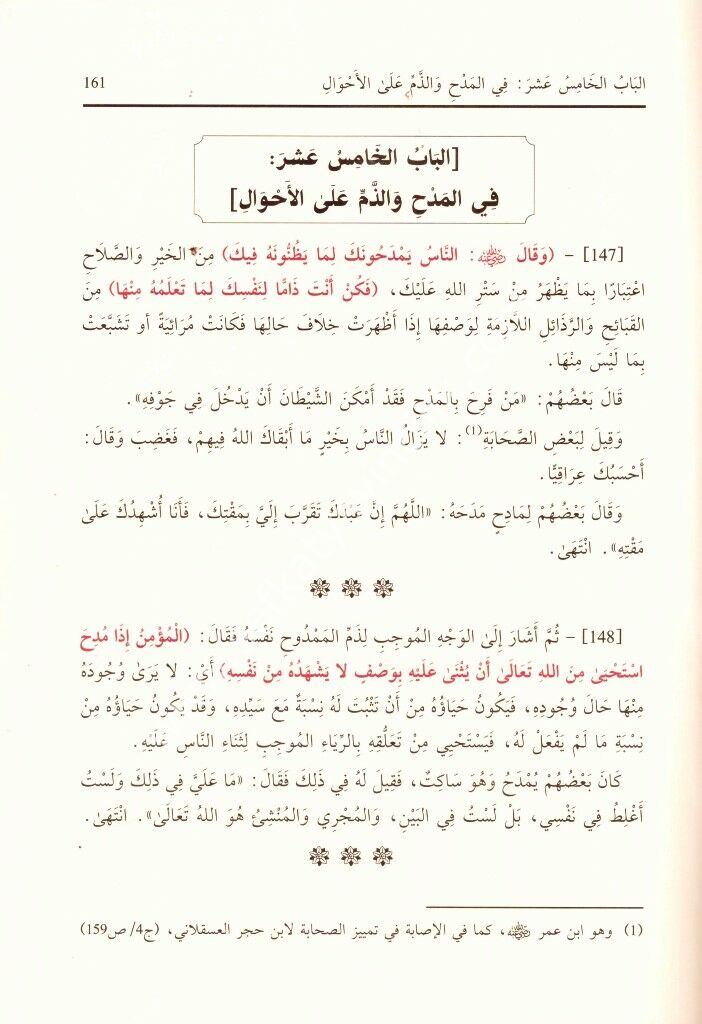 البَابُ الخَامِسُ عَشَرَ: فِي المَدْحِ وَالذَّمِّ عَلَى الأَحْوَالِ 161
[البَابُ الخَامِسُ عَشَرَ:
فِي المَدْحِ وَالذَّمِّ عَلَى الأَحْوَالِ]
[147] - (وَقَالَ ﵁: النَّاسُ يَمْدَحُونَكَ لِمَا يَظُنُّونَهُ فِيكَ) مِنَ الخَيْرِ وَالصَّلَاحِ
اعْتِبَارًا بِمَا يَظْهَرُ مِنْ سَتْرِ اللهِ عَلَيْكَ، (فَكُنْ أَنْتَ ذَامًّا لِنَفْسِكَ لِمَا تَعْلَمُهُ مِنْهَا) مِنَ
القَبَائِحِ وَالرَّذَائِلِ اللَّازِمَةِ لِوَصْفِهَا إِذَا أَظْهَرَتْ خِلَافَ حَالِهَا فَكَانَتْ مُرَائِيَةً أو تَشَبَّعَتْ
بِمَا لَيْسَ مِنْهَا.
قَالَ بَعْضُهُمْ: «مَنْ فَرِحَ بِالمَدْحِ فَقَدْ أَمْكَنَ الشَّيْطَانَ أَنْ يَدْخُلَ فِي جَوْفِهِ».
وَقِيلَ لِبَعْضِ الصَّحَابَةِ(1): لا يَزَالُ النَّاسُ بِخَيْرٍ مَا أَبْقَاكَ اللهُ فِيهِمْ، فَغَضِبَ وَقَالَ:
أَحْسَبُكَ عِرَاقِيًّا.
وَقَالَ بَعْضُهُمْ لِمَادِحٍ مَدَحَهُ: «اللَّهُمَّ إِنَّ عَبْدَكَ تَقَرَّبَ إِلَيَّ بِمَقْتِكَ، فَأَنَا أُشْهِدُكَ عَلَى
مَقْتِهِ». انْتَهَى.
[148] - ثُمَّ أَشَارَ إِلَى الوَجْهِ المُوجِبِ لِذَمِّ المَمْدُوحِ نَفْسَهُ فَقَالَ: (الْمُؤْمِنُ إِذَا مُدِحَ
اسْتَحْيَىٰ مِنَ اللهِ تَعَالَىٰ أَنْ يُثْنَىٰ عَلَيْهِ بِوَصْفٍ لا يَشْهَدُهُ مِنْ نَفْسِهِ) أَيْ: لا يَرَىٰ وُجُودَهُ
مِنْهَا حَالَ وُجُودِهِ، فَيَكُونُ حَيَاؤُهُ مِنْ أَنْ تَثْبُتَ لَهُ نِسْبَةٌ مَعَ سَيِّدِهِ، وَقَدْ يَكُونُ حَيَاؤُهُ مِنْ
نِسْبَةِ مَا لَمْ يَفْعَلْ لَهُ، فَيَسْتَحْيِي مِنْ تَعَلُّقِهِ بِالرِّيَاءِ المُوجِبِ لِثَنَاءِ النَّاسِ عَلَيْهِ.
كَانَ بَعْضُهُمْ يُمْدَحُ وَهُوَ سَاكِتٌ، فَقِيلَ لَهُ فِي ذَلِكَ فَقَالَ: «مَا عَلَيَّ فِي ذَلِكَ وَلَسْتُ
أَغْلِطُ فِي نَفْسِي، بَلْ لَسْتُ فِي البَيْنِ، وَالمُجْرِي وَالمُنْشِئُ هُوَ اللهُ تَعَالَىٰ». انْتَهَىٰ.
(1) وهو ابن عمر ﵁، كما في الإصابة في تمييز الصحابة لابن حجر العسقلاني، (ج4/ ص159)